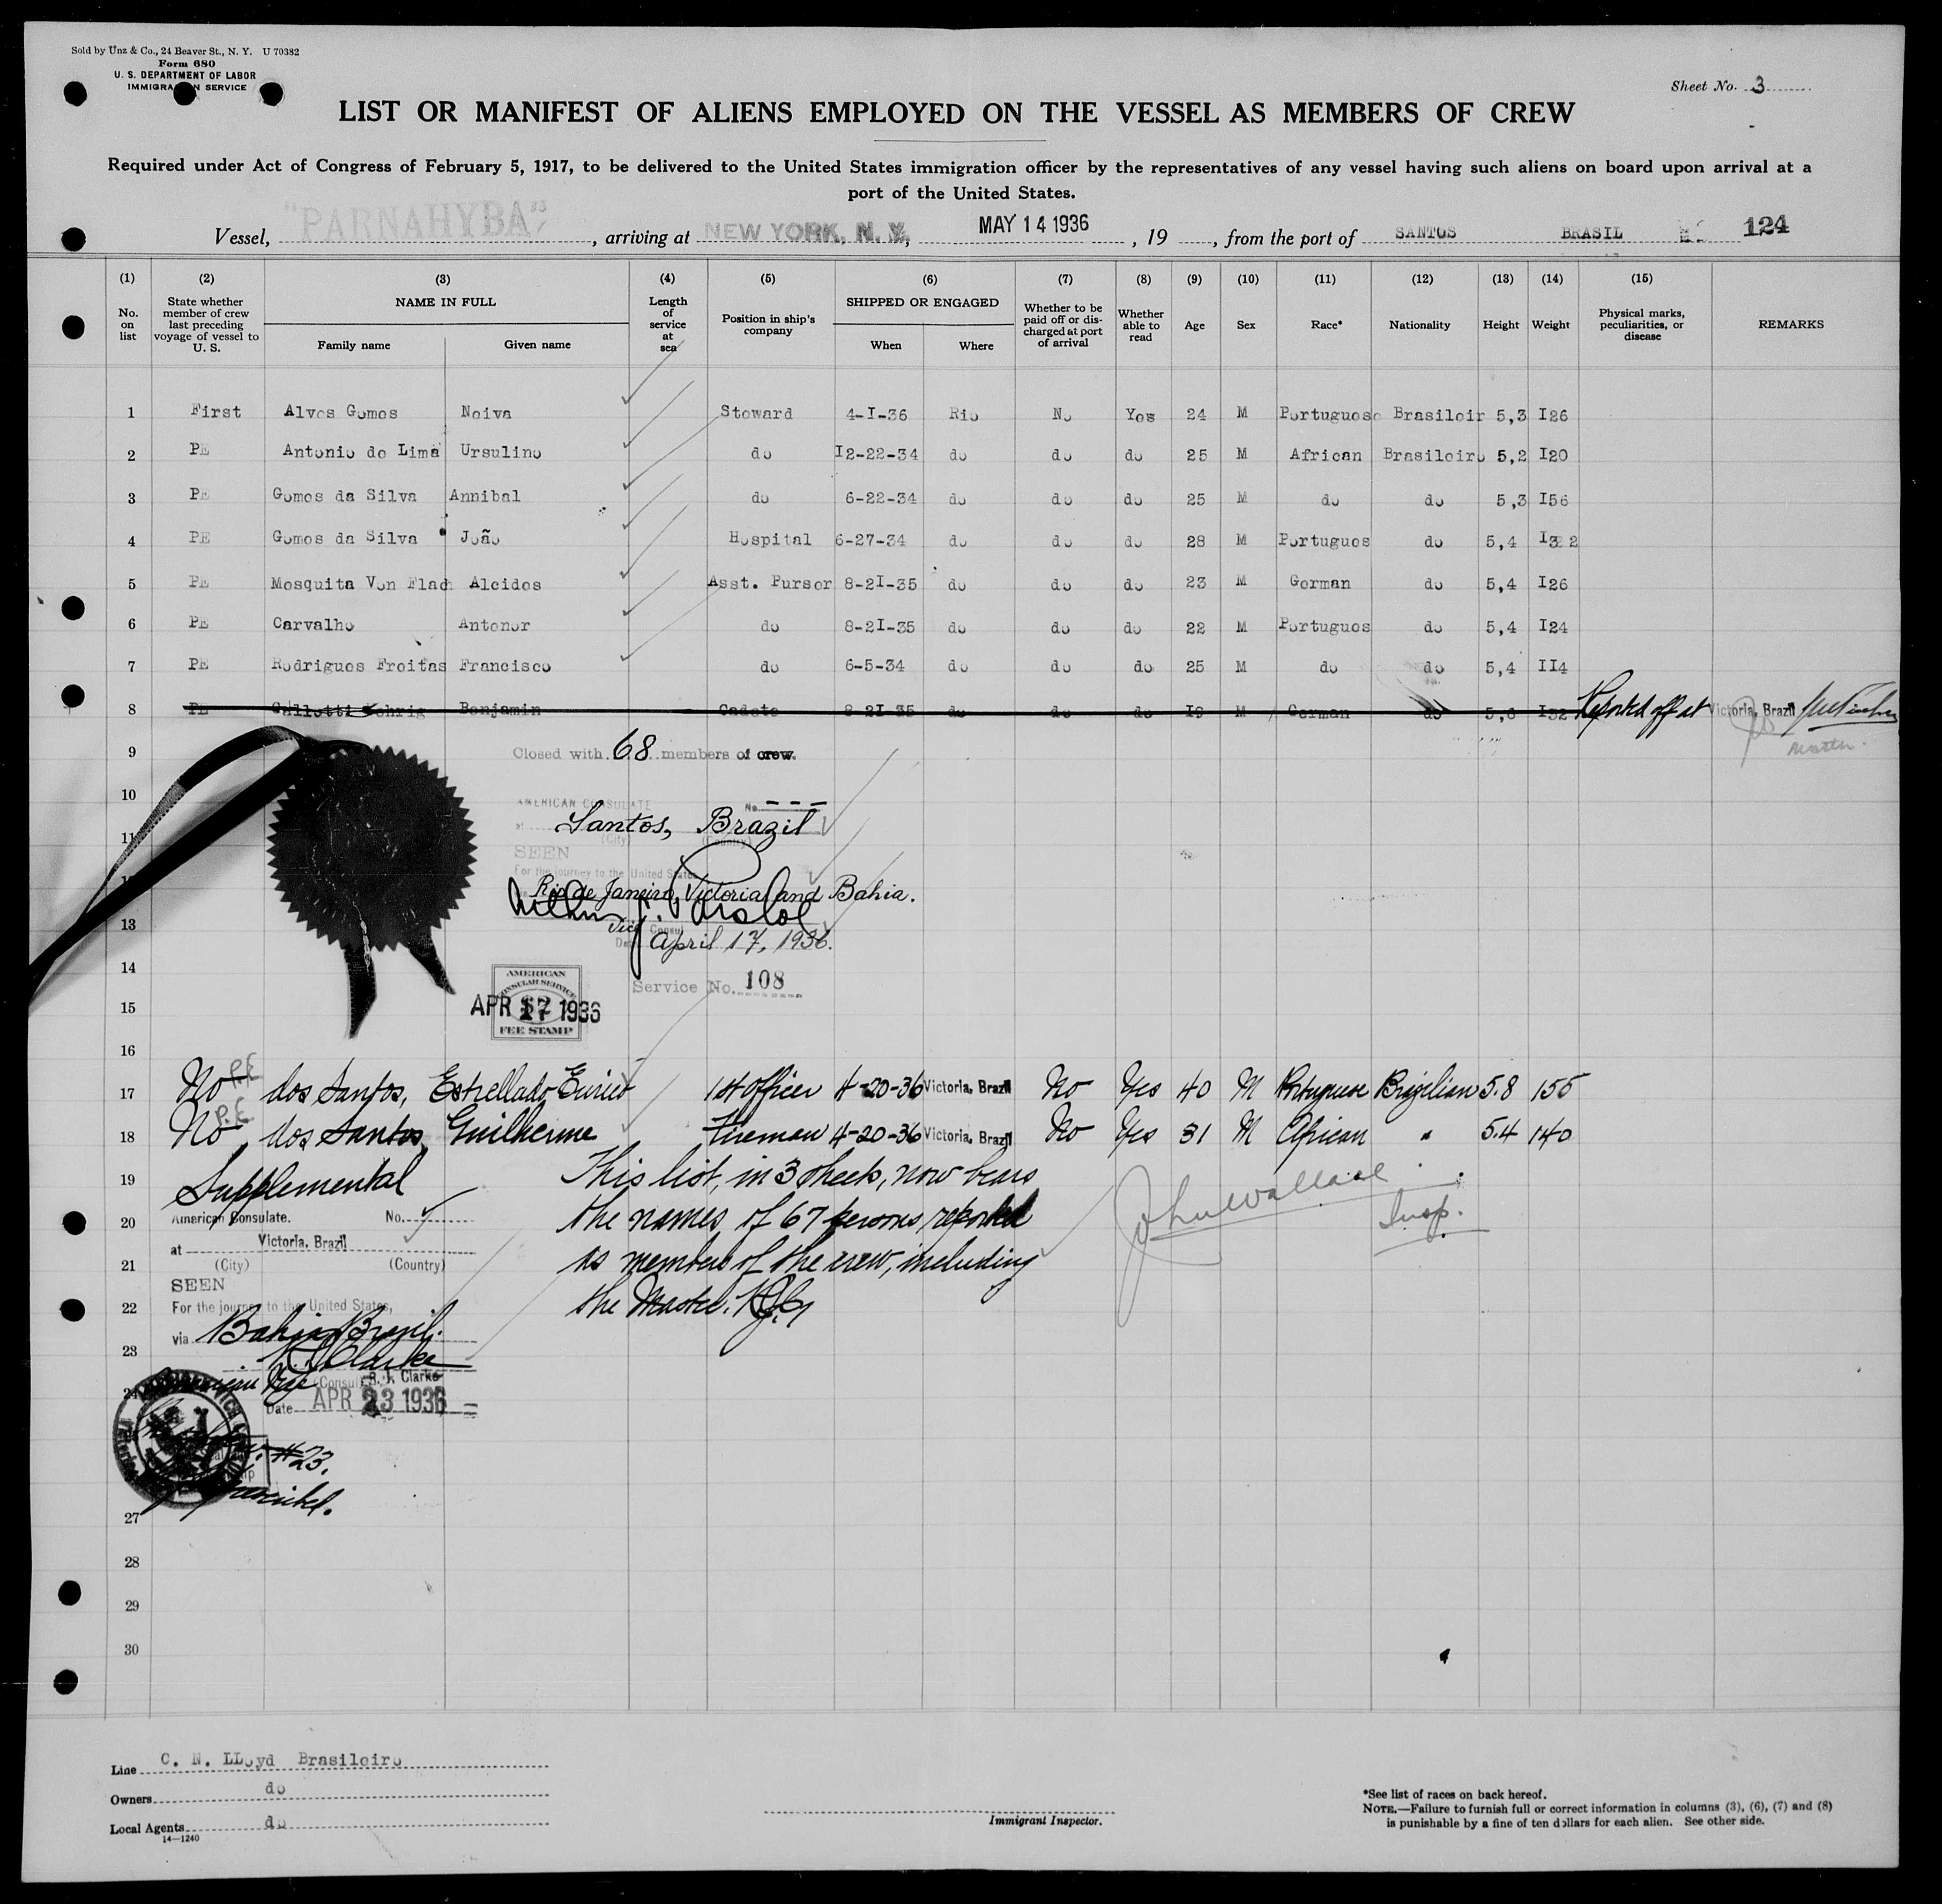 Sold by Unz & Co., 24 Beaver St., N. Y. U 70382
Form 680
U. S. DEPARTMENT OF LABOR
IMMIGRATION SERVICE
Sheet No. 3
LIST OR MANIFEST OF ALIENS EMPLOYED ON THE VESSEL AS MEMBERS OF CREW
Required under Act of Congress of February 5, 1917, to be delivered to the United States immigration officer by the representatives of any vessel having such aliens on board upon arrival at a
port of the United States.
Vessel, "PARNAHYBA", arriving at NEW YORK, N. Y., MAY 14 1936, 19 , from the port of SANTOS BRASIL 124
(1) (2) (3) (4) (5) (6) (7) (8) (9) (10) (11) (12) (13) (14) (15)
No. on list
State whether member of crew last preceding voyage of vessel to U. S.
NAME IN FULL
Family name Given name
Length of service at sea
Position in ship's company
SHIPPED OR ENGAGED
When Where
Whether to be paid off or discharged at port of arrival
Whether able to read
Age Sex Race* Nationality Height Weight
Physical marks, peculiarities, or disease
REMARKS
1 First Alves Gomes Neiva Steward 4-I-36 Rio No Yes 24 M Portuguese Brasileir 5,3 I26
2 PE Antonio de Lima Ursulino do I2-22-34 do do do 25 M African Brasileiro 5,2 I20
3 PE Gomes da Silva Annibal do 6-22-34 do do do 25 M do do 5,3 I56
4 PE Gomes da Silva João Hospital 6-27-34 do do do 28 M Portugues do 5,4 I32
5 PE Mesquita Von Flach Alcides Asst. Purser 8-2I-35 do do do 23 M German do 5,4 I26
6 PE Carvalho Antenor do 8-2I-35 do do do 22 M Portugues do 5,4 I24
7 PE Rodrigues Freitas Francisco do 6-5-34 do do do 25 M do do 5,4 II4
8 PE Benjamin Cadete 8-2I-35 do do do I9 M German do 5,6 I32 Reported off at Victoria, Brazil
Master.
9 Closed with 68 members of crew.
10 AMERICAN CONSULATE No. ---
11 at Santos, Brazil
(City) (Country)
SEEN
For the journey to the United States
Rio de Janeiro, Victoria and Bahia.
13 Vice Consul
Date April 17, 1936.
14 Service No. 108
AMERICAN
CONSULAR SERVICE
15 APR 17 1936
FEE STAMP
16
17 No PE dos Santos, Estrellado Eurico 1st Officer 4-20-36 Victoria, Brazil No Yes 40 M Portuguese Brazilian 5.8 155
18 No P.E. dos Santos, Guilherme Fireman 4-20-36 Victoria, Brazil No Yes 31 M African " 5.4 140
19 Supplemental This list, in 3 sheets, now bears
John Wallace
Insp.
20 American Consulate. No. the names of 67 persons, reported
at Victoria, Brazil
21 (City) (Country) as members of the crew, including
SEEN
22 For the journey to the United States, the Master.
via Bahia, Brazil.
23 Clarke
24 American Vice Consul R. J. Clarke
Date APR 23 1936
#23.
27
28
29
30
Line C. N. LLoyd Brasileiro
Owners do
Local Agents do
14—1240
Immigrant Inspector.
*See list of races on back hereof.
NOTE.—Failure to furnish full or correct information in columns (3), (6), (7) and (8)
is punishable by a fine of ten dollars for each alien. See other side.